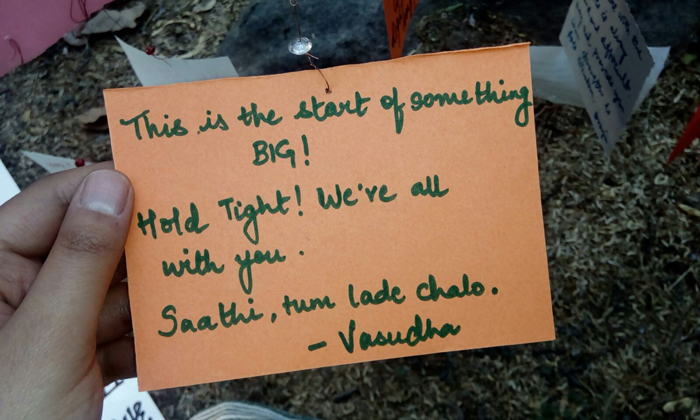 This is the start of something
BIG!
Hold Tight! We're all
with you.
Saathi, tum lade chalo.
- Vasudha